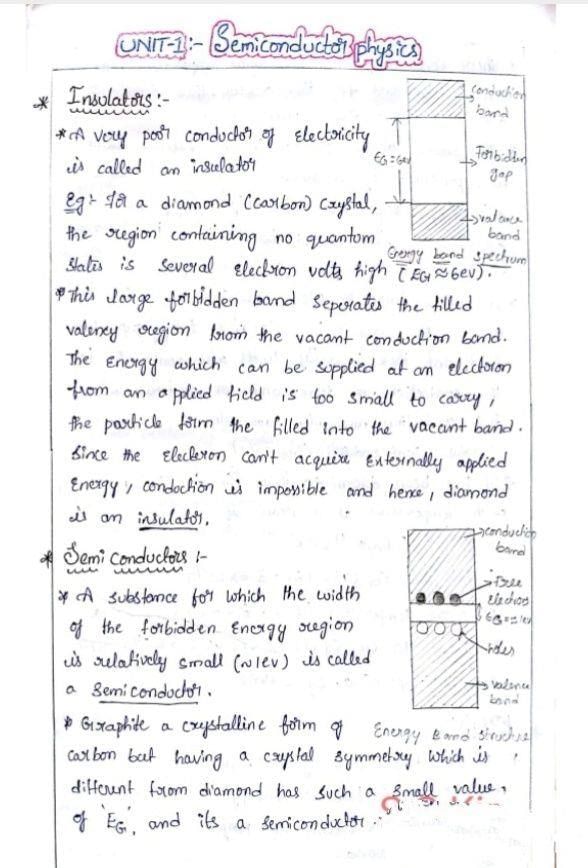 UNIT-1:- Semiconductor physics
* Insulators:-
* A very poor conductor of electricity
is called an insulator
Eg:- for a diamond (carbon) crystal,
the region containing no quantum
states is several electron volts high (EG ≈ 6ev).
conduction
band
EG = 6ev
Forbidden
gap
valance
band
Energy band spectrum
* This large forbidden band seperates the filled
valency region from the vacant conduction band.
The Energy which can be supplied at an electron
from an applied field is too small to carry,
the particle form the filled into the vacant band.
Since the electron can't acquire Externally applied
Energy, condoction is impossible and hence, diamond
is an insulator.
* Semi conductors :-
* A substance for which the width
of the forbidden Energy region
is relatively small (~1ev) is called
a Semi conductor.
conduction
band
Free
electrons
EG = 1ev
holes
valence
band
Energy Band structure
* Graphite a crystalline form of
carbon but having a crystal symmetry which is
different from diamond has such a small value,
of 'EG', and its a semiconductor.